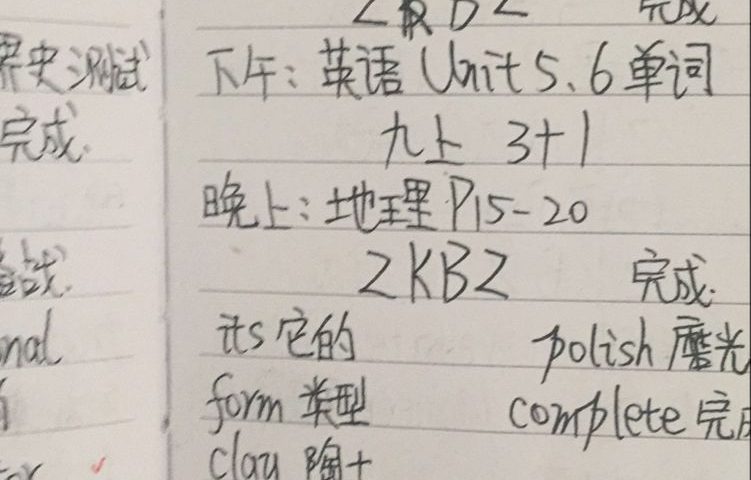 界史测试
完成.
战.
nal
完成
下午：英语 Unit 5、6 单词
九上 3+1
晚上：地理 P15-20
ZKBZ 完成.
its 它的 polish 磨光
form 类型 complete 完成
clay 陶土